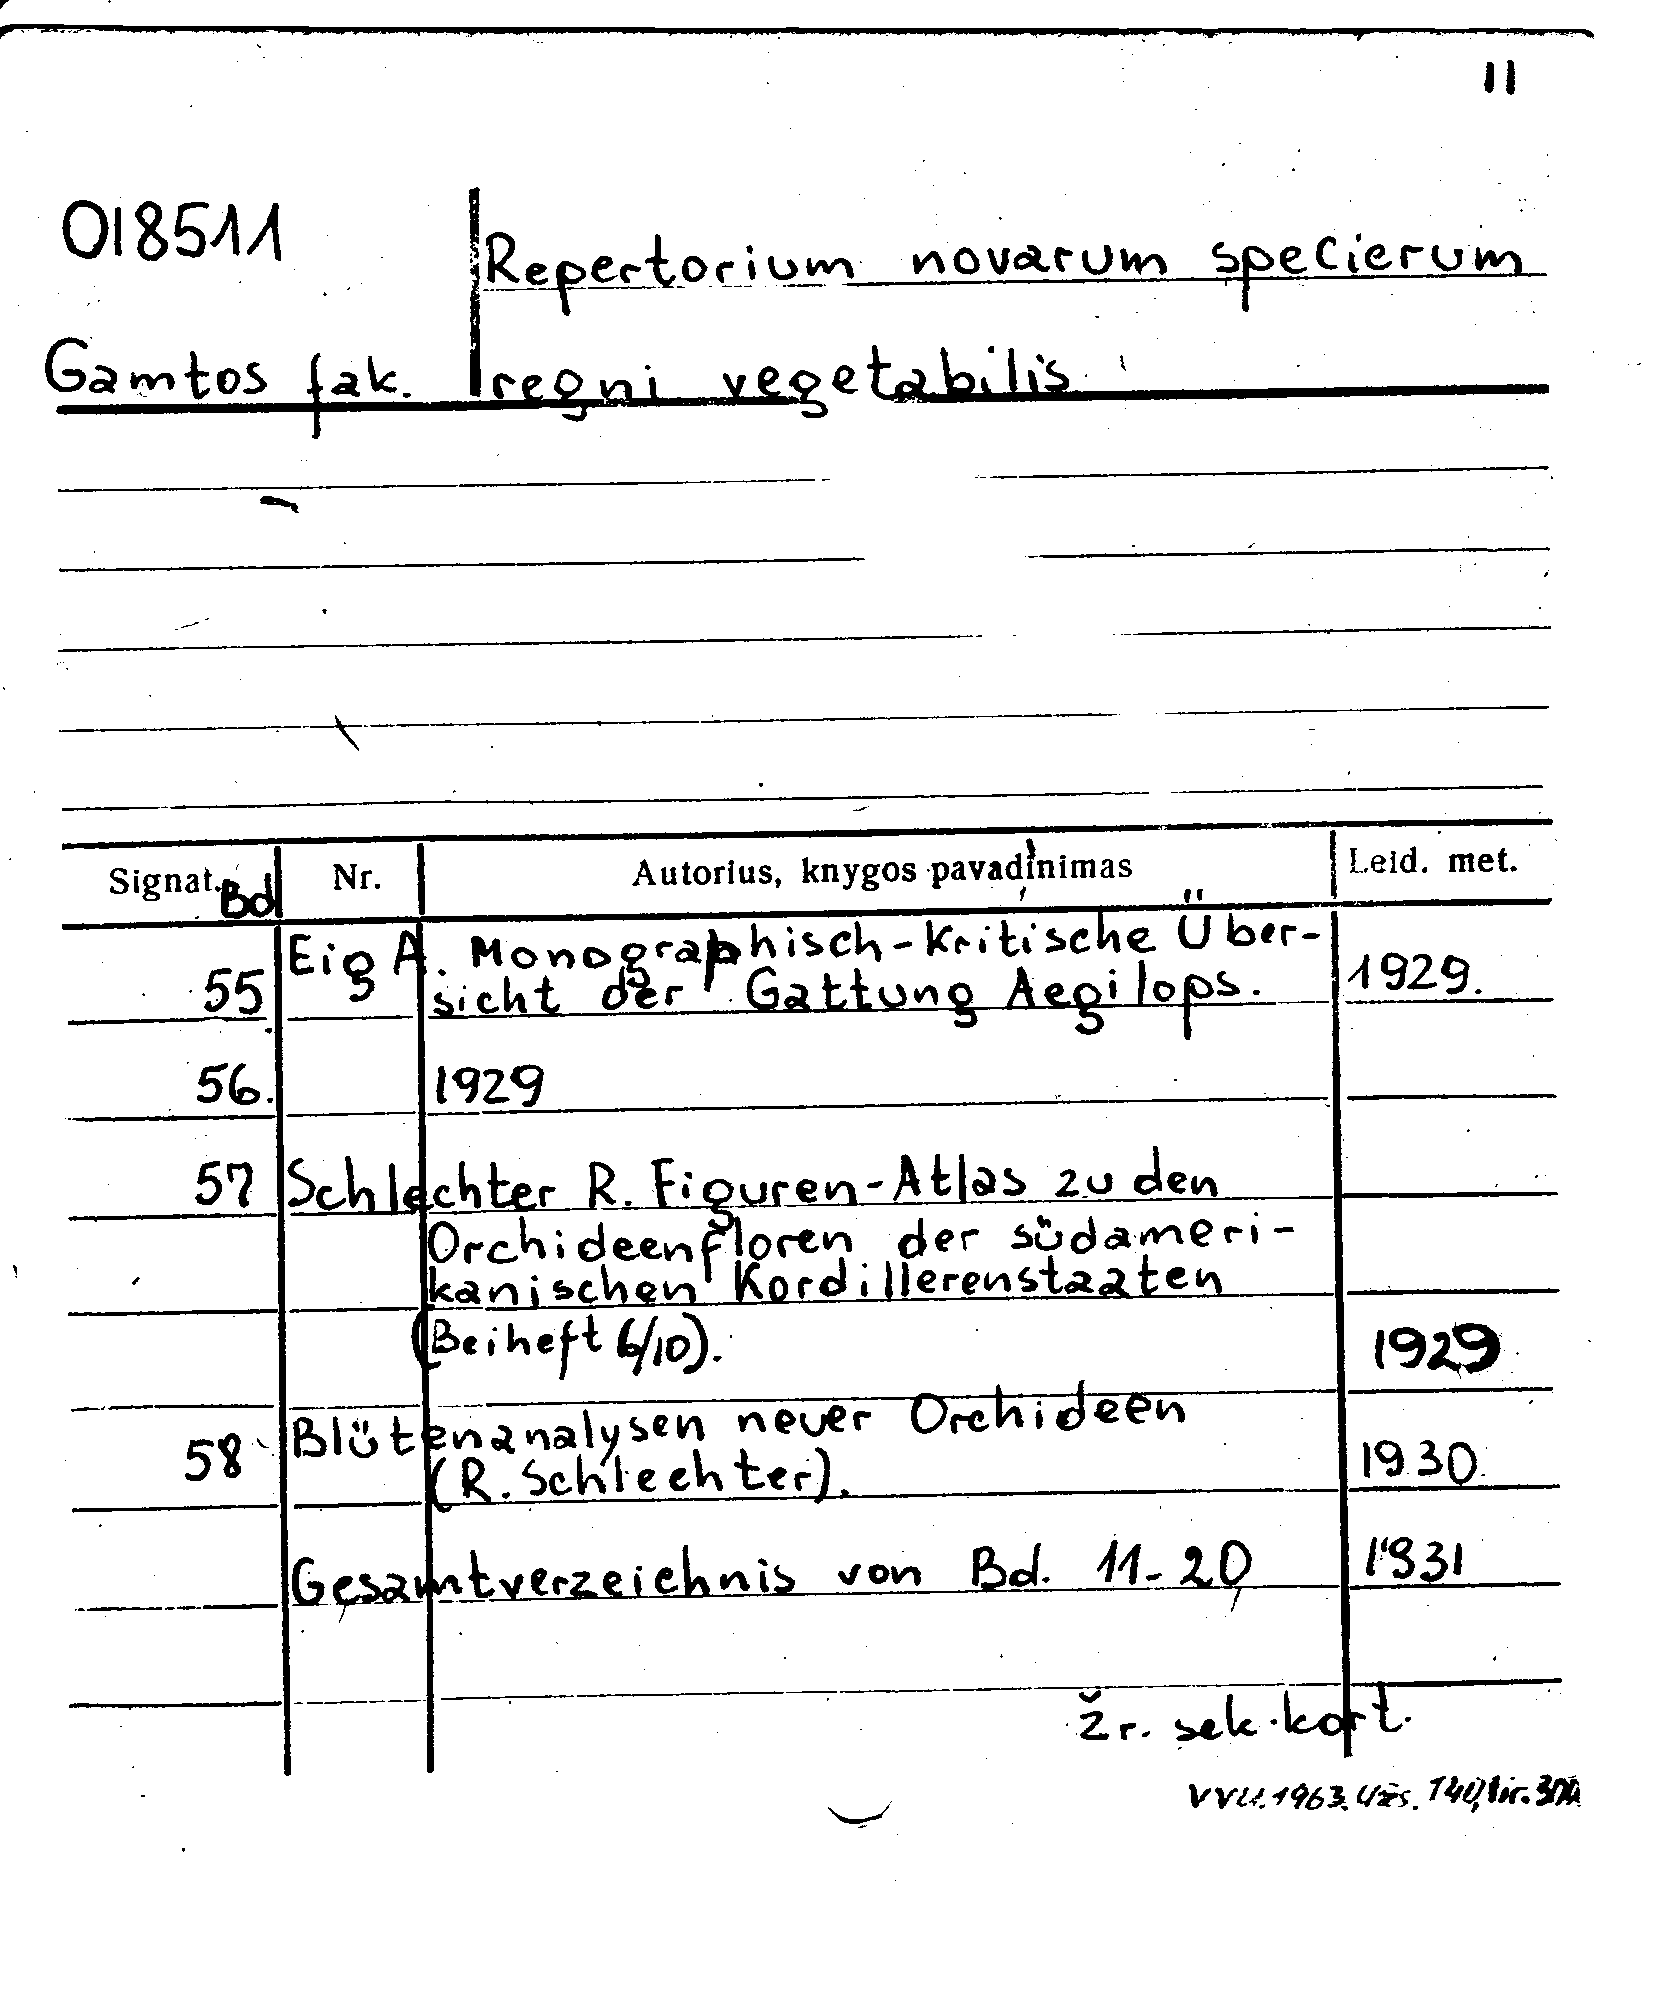 11
018511
Repertorium novarum specierum
Gamtos fak. regni vegetabilis
Signat. Bd Nr. Autorius, knygos pavadinimas Leid. met.
Eig A. Monographisch-kritische Über-
55 sicht der Gattung Aegilops. 1929.
56. 1929
57 Schlechter R. Figuren-Atlas zu den
Orchideenfloren der südameri-
kanischen Kordillerenstaaten
(Beiheft 6/10). 1929
58 Blütenanalysen neuer Orchideen
(R. Schlechter). 1930.
Gesamtverzeichnis von Bd. 11-20 1931
žr. sek. kort.
VVU. 1963. Užs. 140, tir.